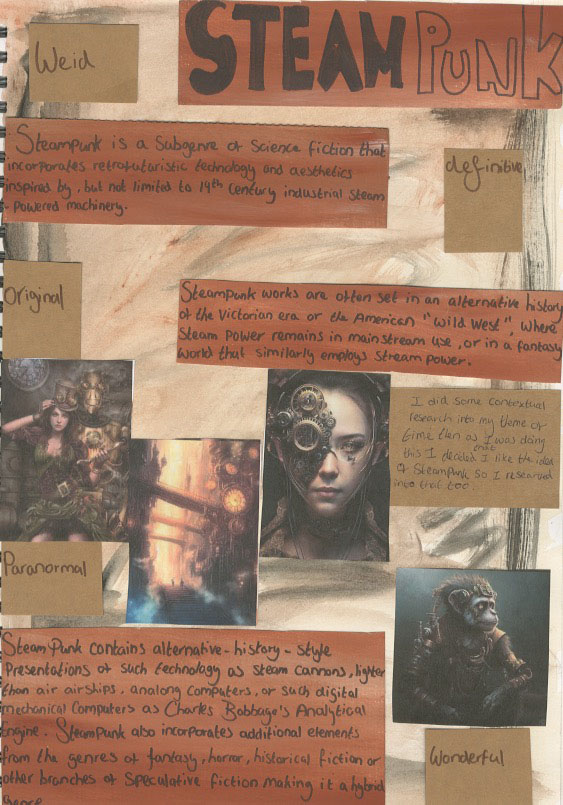 STEAMPUNK
Weid
Steampunk is a Subgenre of Science fiction that
incorporates retrofuturistic technology and aesthetics
inspired by, but not limited to 19th Century industrial Steam
- Powered machinery.
definitive
Original
Steampunk works are often set in an alternative history
of the Victorian era or the American "Wild West", where
Steam Power remains in mainstream use, or in a fantasy
world that similarly employs Stream power.
I did some contextual
research into my theme of
time then as I was doing
this I decided that I like the idea
of Steampunk So I researched
into that too.
Paranormal
SteamPunk contains alternative-history-style
Presentations of such technology as Steam Cannons, lighter
than air airships, analong Computers, or such digital
mechanical Computers as Charles Babbage's Analytical
Engine. SteamPunk also incorporates additional elements
from the genres of fantasy, horror, historical fiction or
other branches of Speculative fiction making it a hybrid
Genre
Wonderful